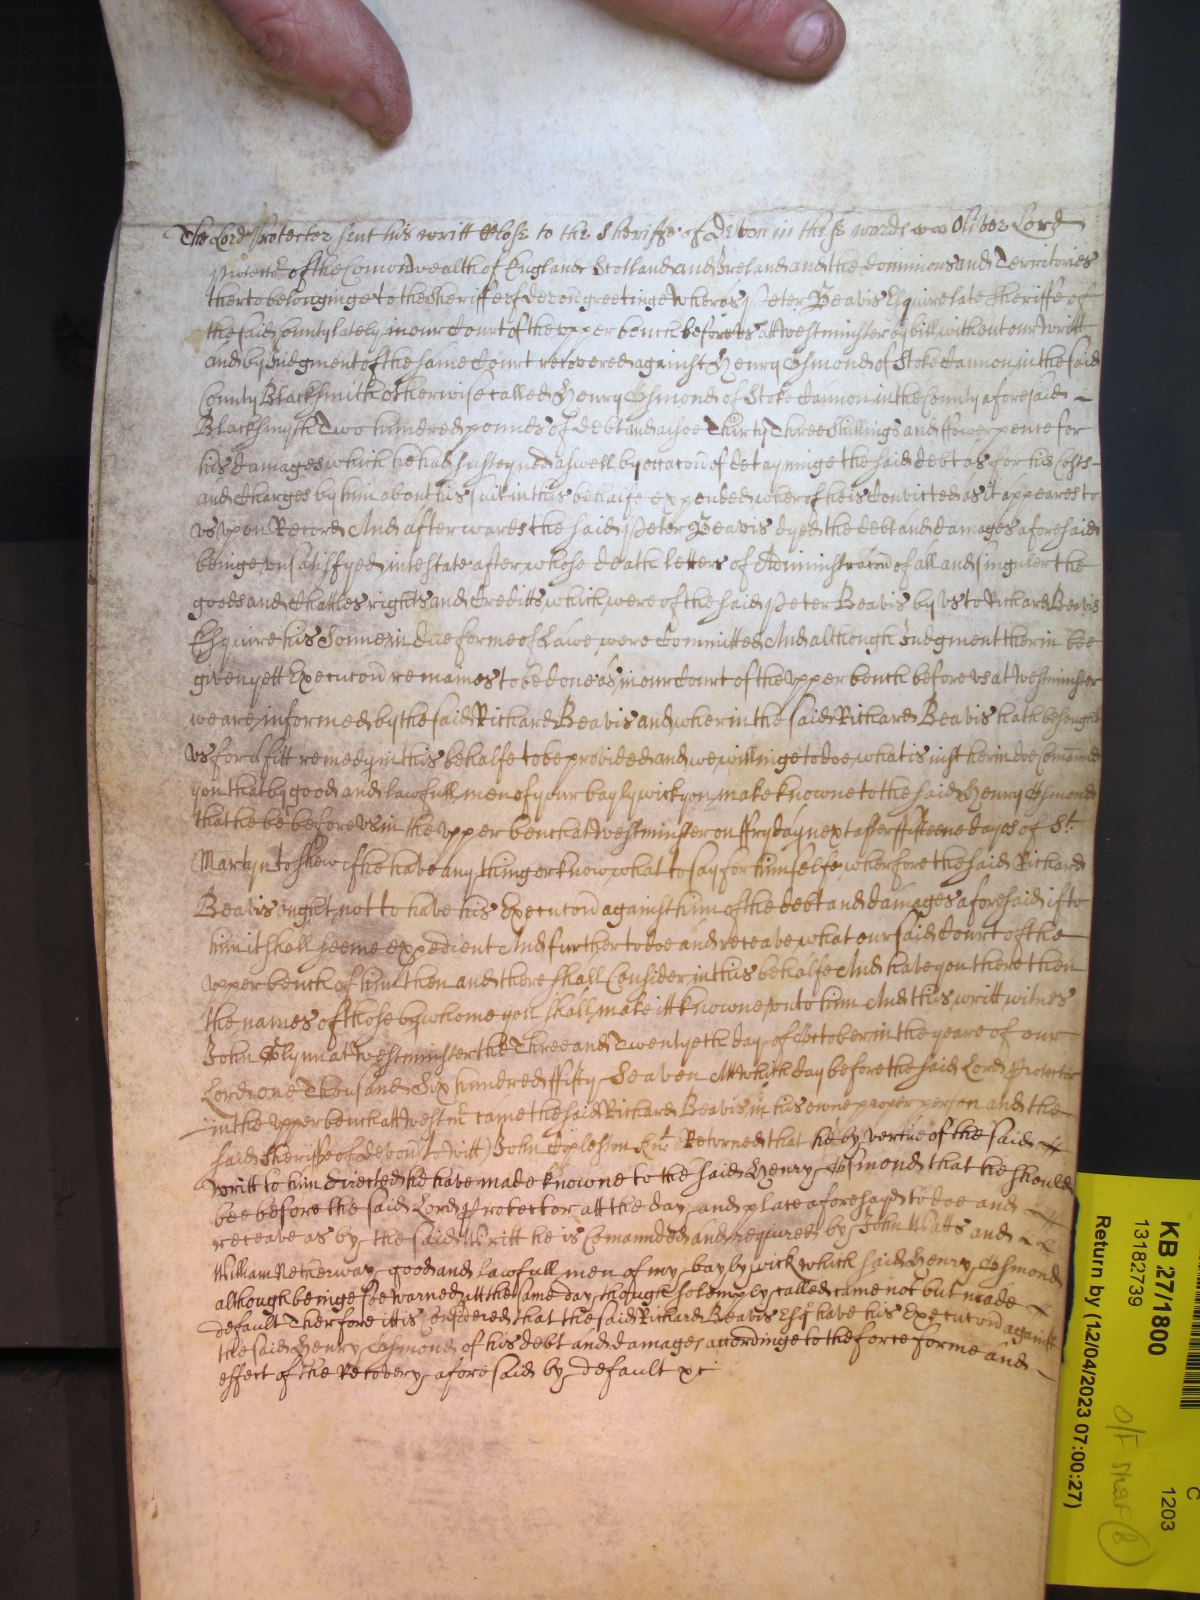 The Lord Protector sent his writt Close to the Sheriffe of Devon in these words Oliver Lord
Protector of the Comonwealth of England Scotland and Ireland and the dominions and Territories
therto belonginge to the Sheriffe of devon greetinge Wheras Peter Beavis Esquire late Sheriffe of
the said County lately in our Court of the upper bench before us at westminster by bill without our writt
and by Judgment of the same Court recovered against Henry Esmond of Stoke Cannon in the said
County Blacksmith otherwise called Henry Esmond of Stoke Cannon in the County aforesaid
Blacksmyth Two hundred pounds of debt and alsoe Thirty Three Shillings and ffower pence for
his damages which he had susteyned aswell by occacon of detayninge the said debt as for his Costs
and Charges by him about his suit in this behalfe expended wherof he is Convicted as it appeares to
us upon Record And afterwards the said Peter Beavis dyed the debt and damages aforesaid
beinge unsatisfyed intestate after whose death letters of Administracon of all and singuler the
goods and Chattles rights and Creditts which were of the said Peter Beavis by us to Richard Beavis
Esquire his Sonne in due forme of Lawe were Committed And although Judgment therin bee
given yett Execucon remaines to be done as in our Court of the upper bench before us at Westminster
we are informed by the said Richard Beavis and wherin the said Richard Beavis hath besought
us for a fitt remedy in this behalfe to be provided and we willinge to doe what is iust herin doe Comannd
you that by good and lawfull men of your baylywick you make knowne to the said Henry Esmond
that he be before us in the upper bench at Westminster on ffryday next after ffifteene dayes of St.
Martyn to shew if he have any thing or know what to say for himselfe wherfore the said Richard
Beavis ought not to have his Execucon against him of the debt and damages aforesaid if to
him it shall seeme expedient And further to doe and receave what our said Court of the
upper bench of him then and there shall Consider in this behalfe And have you there then
the names of those by whome you shall make itt knowne unto him And this writt witnes
John Glynn at Westminster the Three and Twentyeth day of October in the yeare of our
Lord one Thousand Six hundred ffifty Seaven Att which day before the said Lord Protector
in the upper bench att Westmr came the said Richard Beavis in his owne proper person and the
said Sheriffe of devon (to witt) John Copleston Knt. Returned that he by vertue of the said
writt to him directed he have made knowne to the said Henry Esmond that he should
bee before the said Lord Protector att the day and place aforesayd to doe and
receave as by the said Writt he is Comannded and required by John Watts and
William Netherway good and lawfull men of my baylywick which said Henry Esmond
although beinge soe warned att the same day though solemply called came not but made
default Therfore itt is Considered that the said Richard Beavis Esq have his Execucon against
the said Henry Esmond of his debt and damages accordinge to the force forme and
effect of the Recovery aforesaid by default &c
KB 27/1800
13182739
Return by (12/04/2023 07:00:27)
C
1203